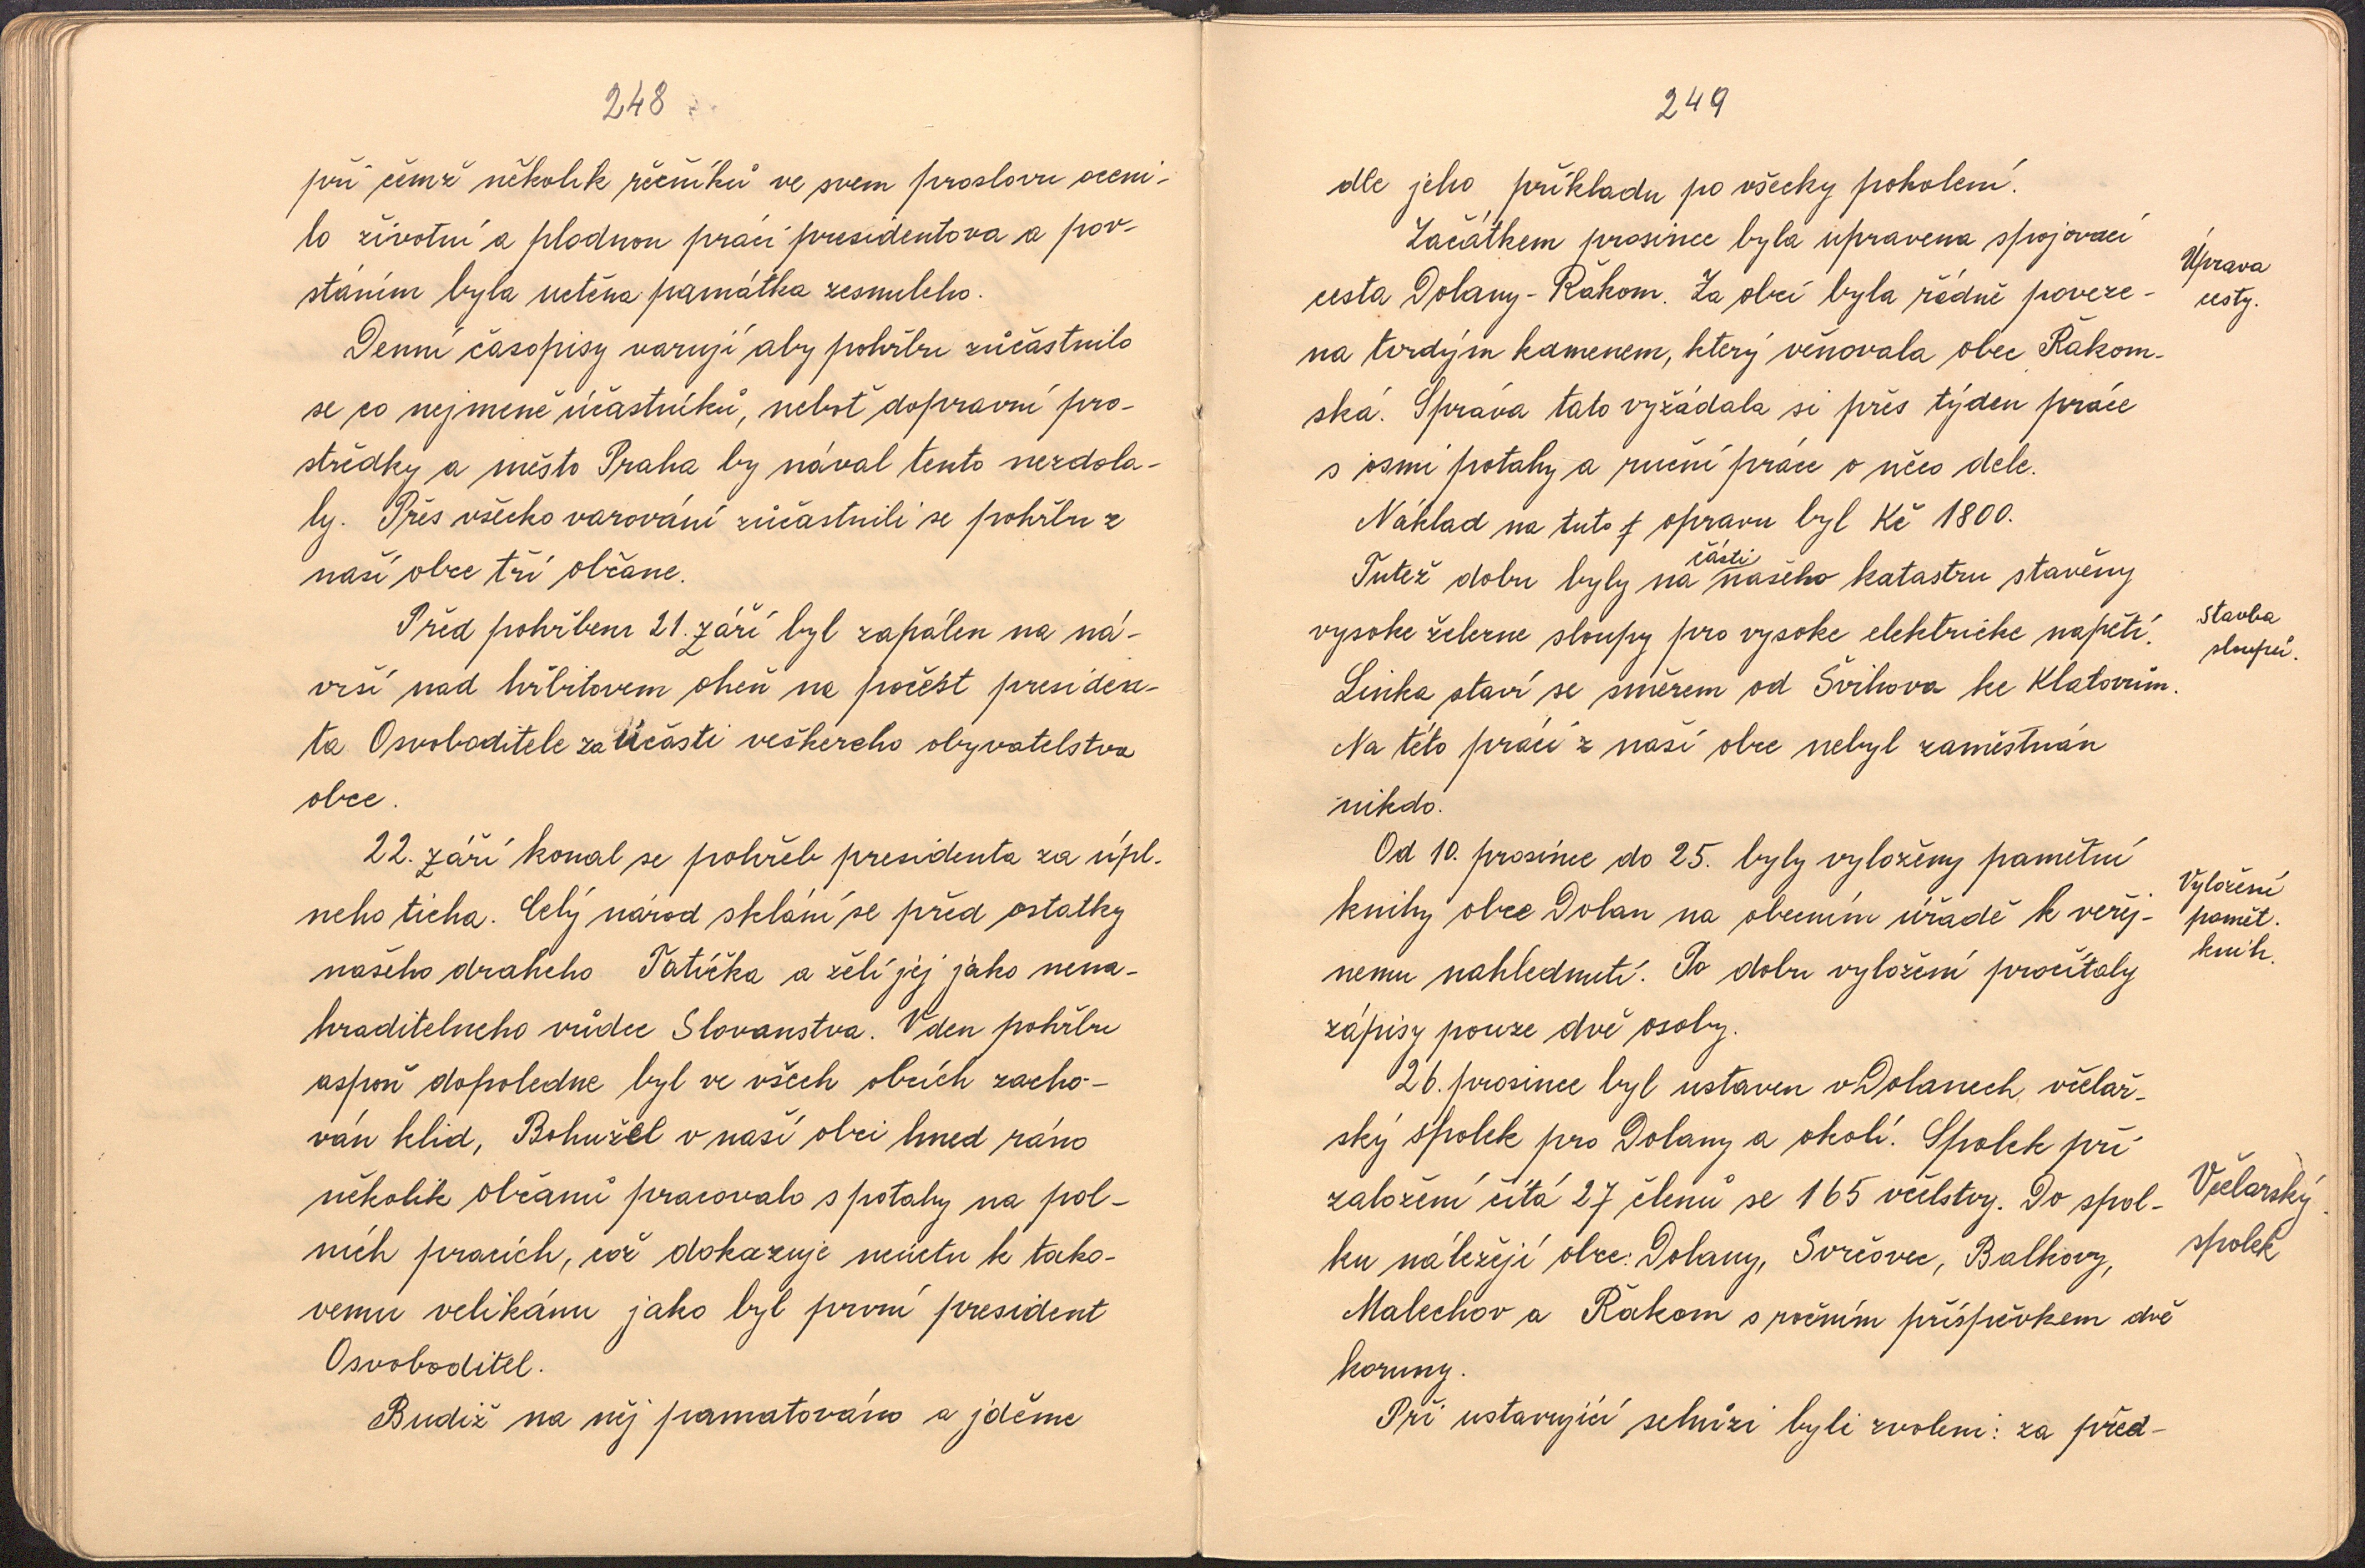 248
při čemž několik řečníků ve svem proslovu oceni-
lo životní a plodnou práci presidentova a pov-
stáním byla uctěna památka zesnuleho.
Denní časopisy varují aby pohřbu zůčastnilo
se co nejmeně účastníků, neboť dopravní pro-
střědky a město Praha by nával tento nezdola-
ly. Přes všecko varování zůčastnili se pohřbu z
naší obce tří občane.
Před pohřbem 21. září byl zapálen na ná-
vrší nad hřbitovem oheň na počest presiden-
ta Osvoboditele za účásti veškereho obyvatelstva
obce.
22. září konal se pohřeb presidenta za úpl-
neho ticha. Celý národ sklání se před ostatky
našeho draheho Tatíčka a želí jej jako nena-
hraditelneho vůdce Slovanstva. V den pohřbu
aspoň dopoledne byl ve všech obcích zacho-
ván klid, Bohužel v naší obci hned ráno
několik občanů pracovalo s potahy na pol-
ních pracích, což dokazuje neúctu k tako-
vemu velikánu jako byl první president
Osvoboditel.
Budiž na něj pamatováno a jděme
249
dle jeho příkladu po všecky pokolení.
Začátkem prosince byla upravena spojovací
cesta Dolany-Řakom. Za obcí byla řádně poveze-
na tvrdým kamenem, který věnovala obec Řakom-
ská. Správa tato vyžádala si přes týden práce
s osmi potahy a ruční práce o něco dele.
Náklad na tuto opravu byl Kč 1800.
Tutež dobu byly na části našeho katastru stavěny
vysoke železne sloupy pro vysoke elektricke napětí.
Linka staví se směrem od Švihova ke Klatovům.
Na této práci z naší obce nebyl zaměstnán
nikdo.
Od 10. prosince do 25. byly vyloženy pamětní
knihy obce Dolan na obecním úřadě k veřej-
nemu nahlednutí. Po dobu vyložení pročítaly
zápisy pouze dvě osoby.
26. prosince byl ustaven v Dolanech včelař-
ský spolek pro Dolany a okolí. Spolek při
založení čítá 27 členů se 165 včelstvy. Do spol-
ku náležejí obce: Dolany, Svrčovec, Balkovy,
Malechov a Řakom s ročním příspěvkem dvě
koruny.
Při ustavující schůzi byli zvoleni: za před-
Úprava
cesty.
Stavba
sloupů.
Vyložení
pamět.
knih.
Včelarský
spolek